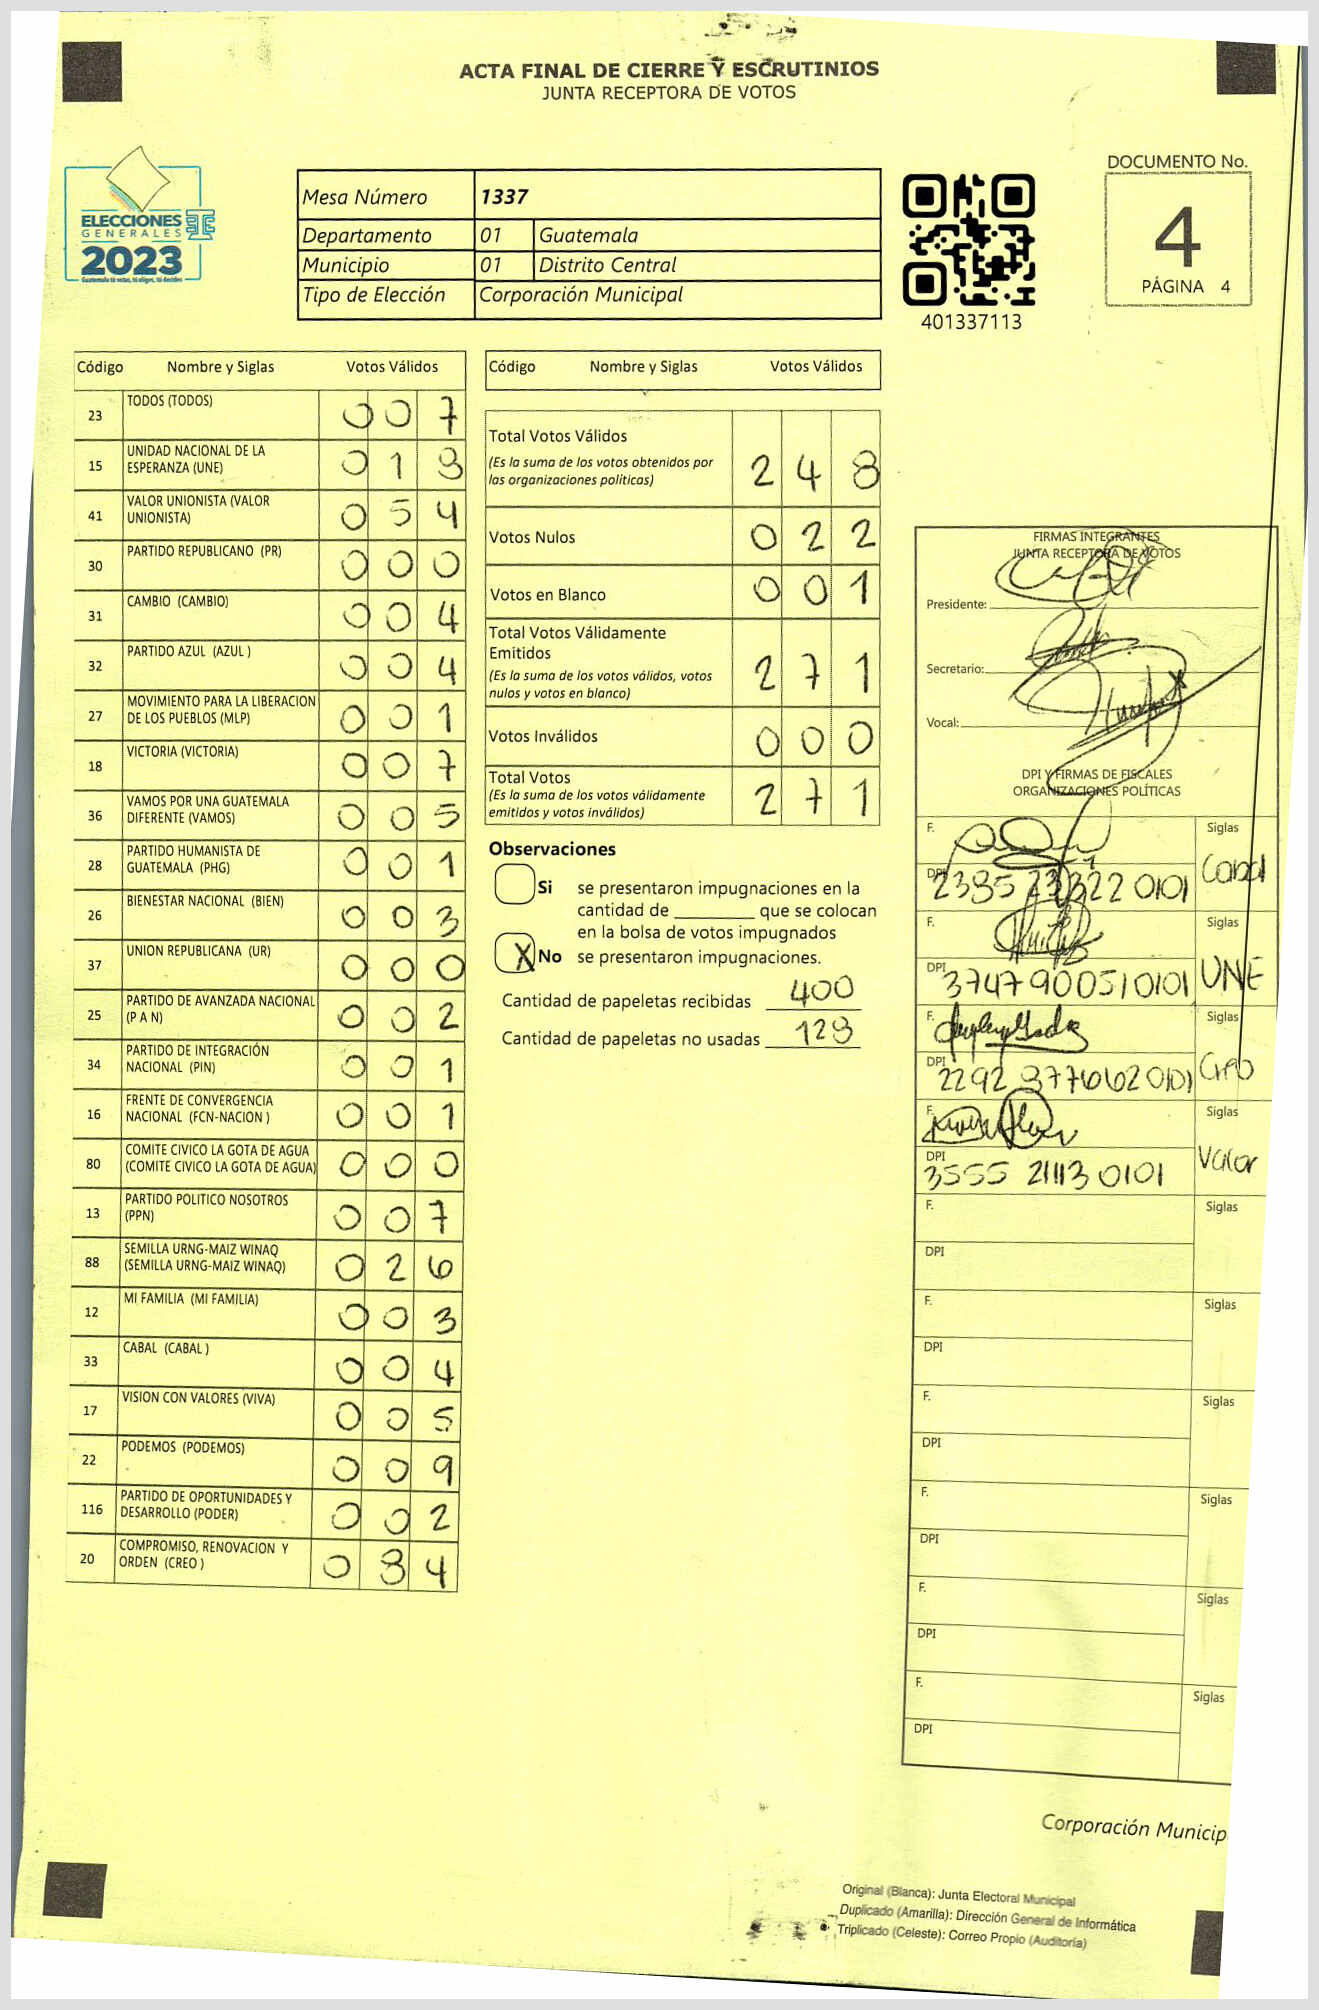 ACTA FINAL DE CIERRE Y ESCRUTINIOS
JUNTA RECEPTORA DE VOTOS
ELECCIONES
GENERALES
2023
Guatemala tú votas, tú eliges, tú decides
Mesa Número 1337
Departamento 01 Guatemala
Municipio 01 Distrito Central
Tipo de Elección Corporación Municipal
401337113
DOCUMENTO No.
4
PÁGINA 4
Código Nombre y Siglas Votos Válidos
23 TODOS (TODOS) 0 0 7
15 UNIDAD NACIONAL DE LA
ESPERANZA (UNE) 0 1 8
41 VALOR UNIONISTA (VALOR
UNIONISTA) 0 5 4
30 PARTIDO REPUBLICANO (PR) 0 0 0
31 CAMBIO (CAMBIO) 0 0 4
32 PARTIDO AZUL (AZUL ) 0 0 4
27 MOVIMIENTO PARA LA LIBERACION
DE LOS PUEBLOS (MLP) 0 0 1
18 VICTORIA (VICTORIA) 0 0 7
36 VAMOS POR UNA GUATEMALA
DIFERENTE (VAMOS) 0 0 5
28 PARTIDO HUMANISTA DE
GUATEMALA (PHG) 0 0 1
26 BIENESTAR NACIONAL (BIEN) 0 0 3
37 UNION REPUBLICANA (UR) 0 0 0
25 PARTIDO DE AVANZADA NACIONAL
(P A N) 0 0 2
34 PARTIDO DE INTEGRACIÓN
NACIONAL (PIN) 0 0 1
16 FRENTE DE CONVERGENCIA
NACIONAL (FCN-NACION ) 0 0 1
80 COMITE CIVICO LA GOTA DE AGUA
(COMITE CIVICO LA GOTA DE AGUA) 0 0 0
13 PARTIDO POLITICO NOSOTROS
(PPN) 0 0 7
88 SEMILLA URNG-MAIZ WINAQ
(SEMILLA URNG-MAIZ WINAQ) 0 2 6
12 MI FAMILIA (MI FAMILIA) 0 0 3
33 CABAL (CABAL ) 0 0 4
17 VISION CON VALORES (VIVA) 0 0 5
22 PODEMOS (PODEMOS) 0 0 9
116 PARTIDO DE OPORTUNIDADES Y
DESARROLLO (PODER) 0 0 2
20 COMPROMISO, RENOVACION Y
ORDEN (CREO ) 0 8 4
Código Nombre y Siglas Votos Válidos
Total Votos Válidos
(Es la suma de los votos obtenidos por
las organizaciones políticas) 2 4 8
Votos Nulos 0 2 2
Votos en Blanco 0 0 1
Total Votos Válidamente
Emitidos
(Es la suma de los votos válidos, votos
nulos y votos en blanco) 2 7 1
Votos Inválidos 0 0 0
Total Votos
(Es la suma de los votos válidamente
emitidos y votos inválidos) 2 7 1
Observaciones
Si se presentaron impugnaciones en la
cantidad de ________ que se colocan
en la bolsa de votos impugnados
X No se presentaron impugnaciones.
Cantidad de papeletas recibidas 400
Cantidad de papeletas no usadas 129
FIRMAS INTEGRANTES
JUNTA RECEPTORA DE VOTOS
Presidente:
Secretario:
Vocal:
DPI Y FIRMAS DE FISCALES
ORGANIZACIONES POLÍTICAS
F. Siglas
DPI 2385 0101 Cabal
F. Siglas
DPI 3747 90051 0101 UNE
F. Siglas
DPI 2292 877662 0101 Creo
F. Siglas
DPI 3555 21113 0101 Valor
F. Siglas
DPI
F. Siglas
DPI
F. Siglas
DPI
F. Siglas
DPI
F. Siglas
DPI
F. Siglas
DPI
Corporación Municip
Original (Blanca): Junta Electoral Municipal
Duplicado (Amarilla): Dirección General de Informática
Triplicado (Celeste): Correo Propio (Auditoría)